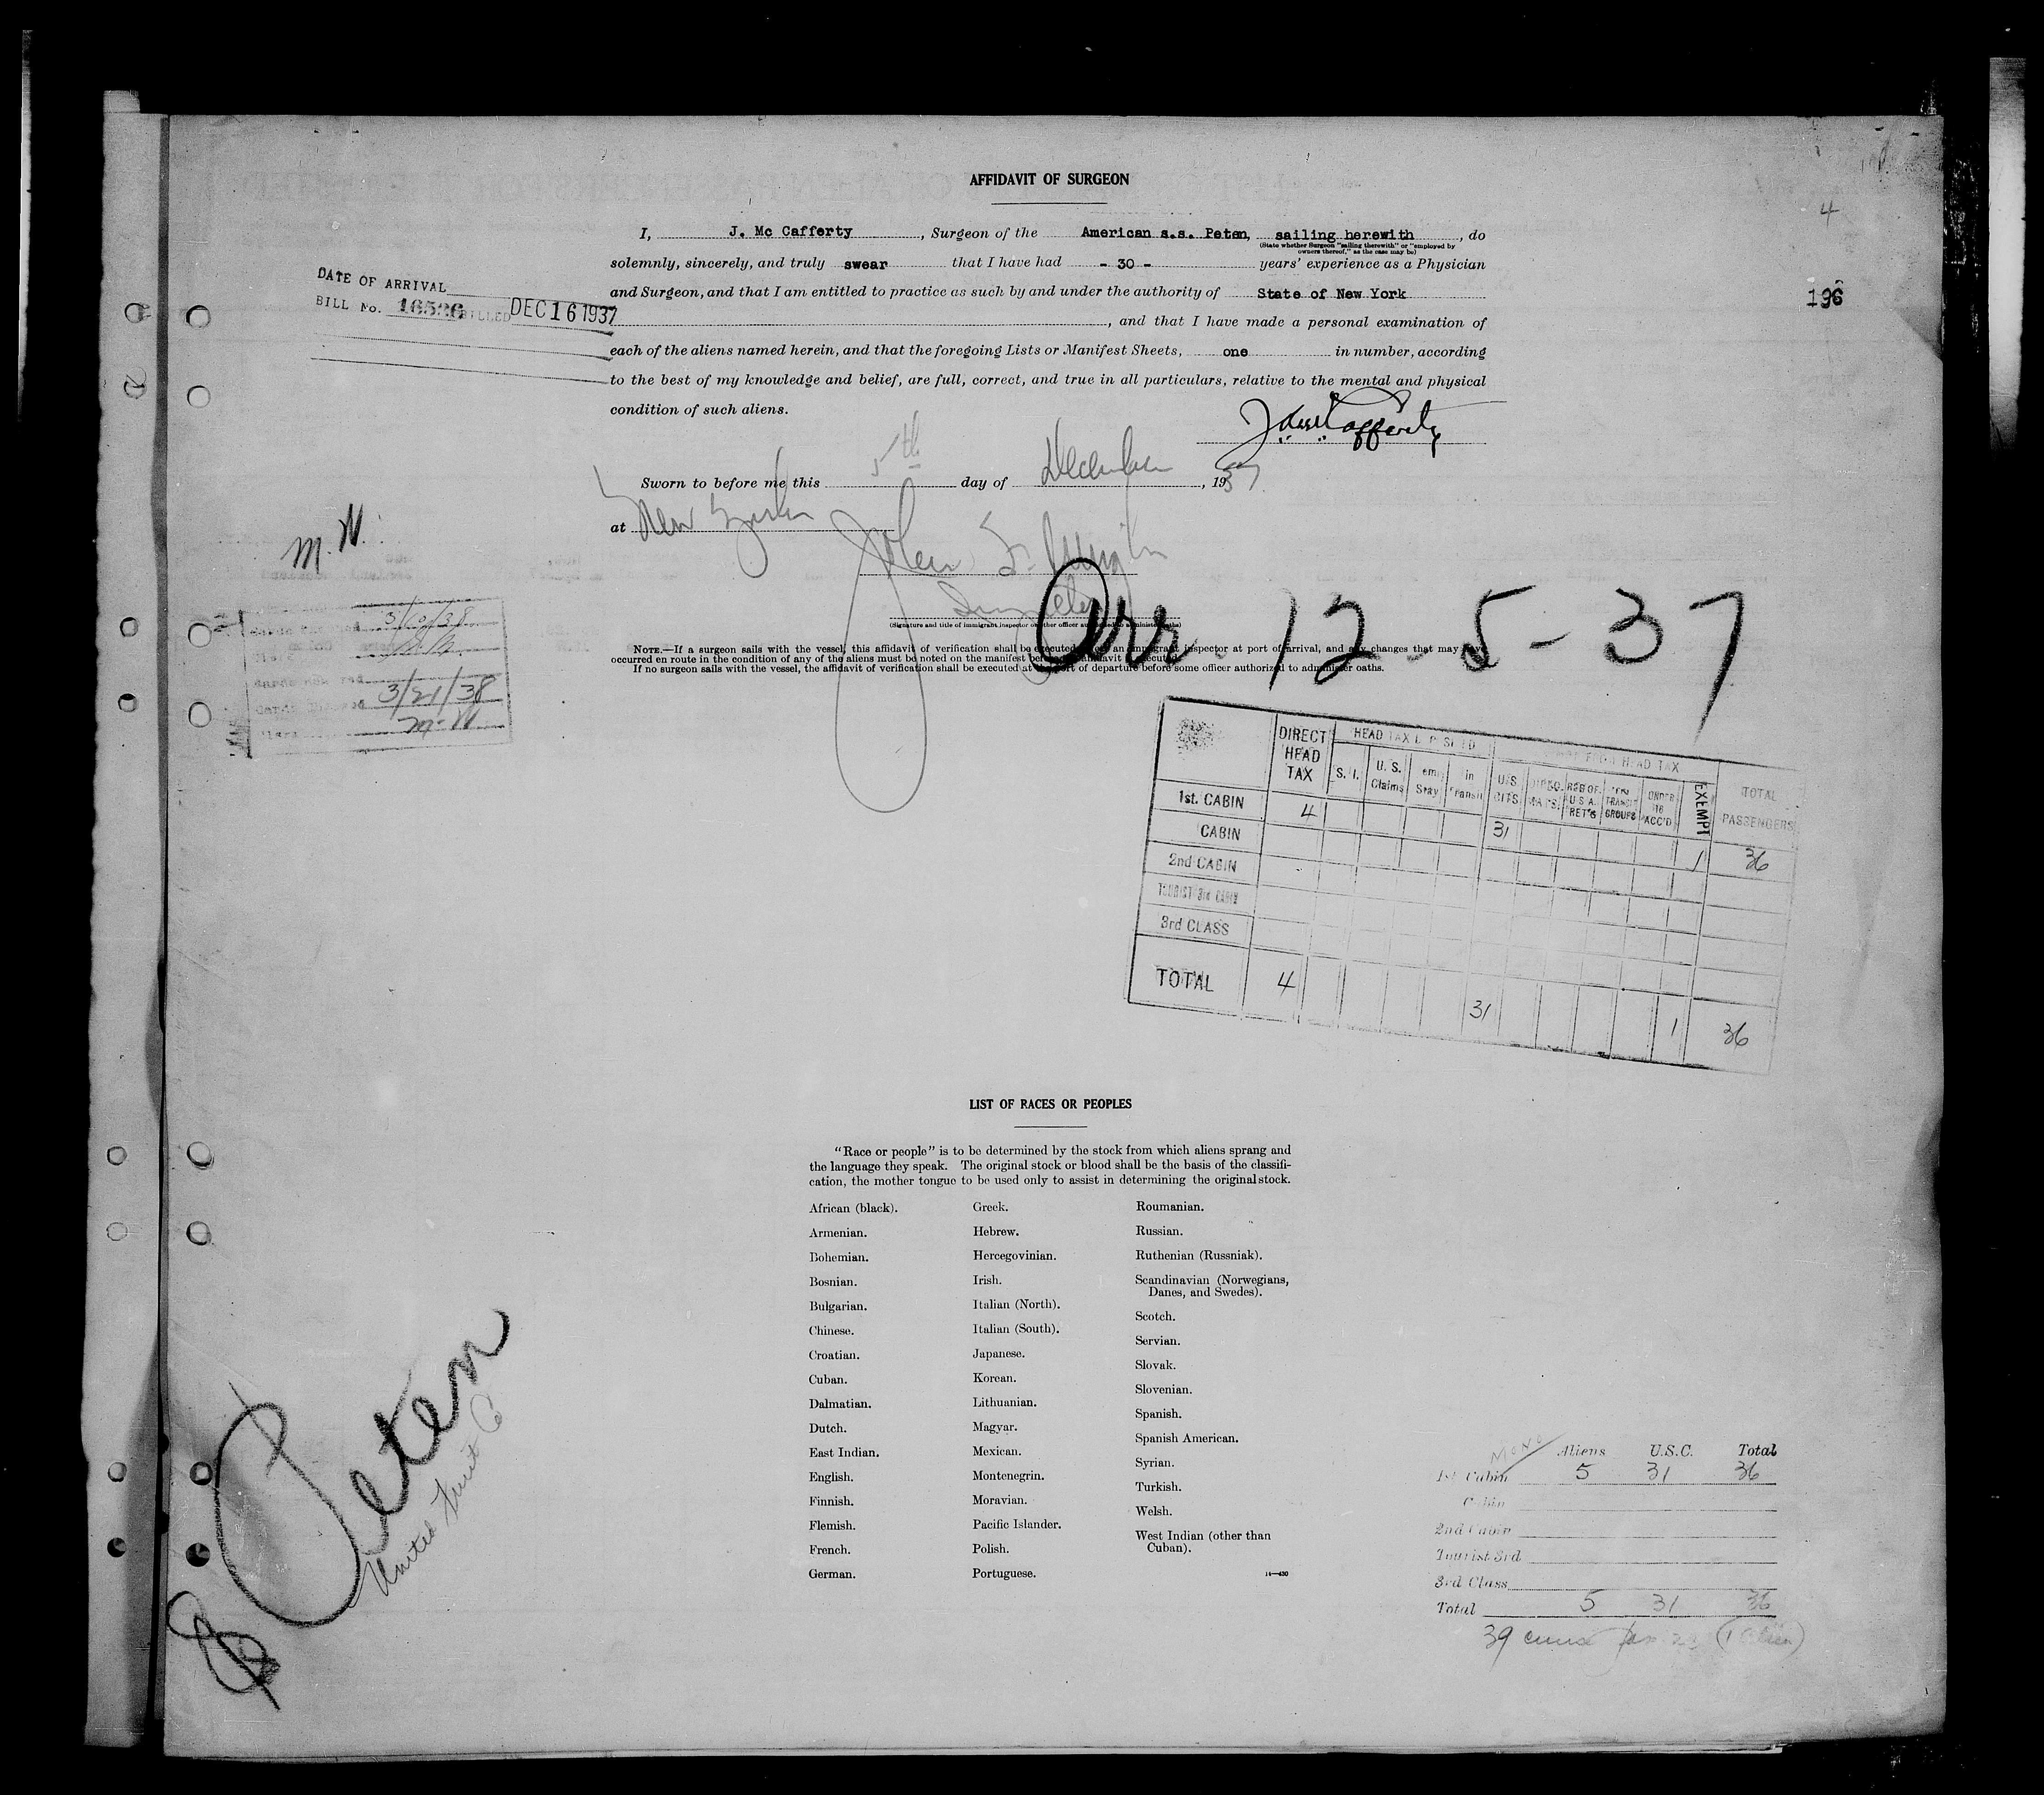 AFFIDAVIT OF SURGEON
4
I, J. Mc Cafferty, Surgeon of the American s.s. Peten, sailing herewith, do
(State whether Surgeon "sailing therewith" or "employed by
owners thereof," as the case may be)
solemnly, sincerely, and truly swear that I have had - 30 - years' experience as a Physician
and Surgeon, and that I am entitled to practice as such by and under the authority of State of New York
, and that I have made a personal examination of
each of the aliens named herein, and that the foregoing Lists or Manifest Sheets, one in number, according
to the best of my knowledge and belief, are full, correct, and true in all particulars, relative to the mental and physical
condition of such aliens.
DATE OF ARRIVAL
BILL No. 16526 BILLED DEC 16 1937
196
Sworn to before me this 5th day of December, 1937
at New York
John F.
Inspector
(Signature and title of immigrant inspector or other officer authorized to administer oaths)
M. W.
3/21/38
M-W
Arr. 12-5-37
NOTE.—If a surgeon sails with the vessel, this affidavit of verification shall be executed before an immigrant inspector at port of arrival, and any changes that may have
occurred en route in the condition of any of the aliens must be noted on the manifest before affidavit is executed.
If no surgeon sails with the vessel, the affidavit of verification shall be executed at the port of departure before some officer authorized to administer oaths.
DIRECT HEAD TAX
HEAD TAX
S. I.
U. S. Claims
Stay
in Transit
U S CITS
HEAD TAX
U S A RET'S
TRANSIT GROUPS
UNDER 16 ACC'D
EXEMPT
TOTAL PASSENGERS
1st. CABIN 4 31 1 36
CABIN
2nd CABIN
TOURIST 3rd CABIN
3rd CLASS
TOTAL 4 31 1 36
LIST OF RACES OR PEOPLES
"Race or people" is to be determined by the stock from which aliens sprang and
the language they speak. The original stock or blood shall be the basis of the classifi-
cation, the mother tongue to be used only to assist in determining the original stock.
African (black).
Armenian.
Bohemian.
Bosnian.
Bulgarian.
Chinese.
Croatian.
Cuban.
Dalmatian.
Dutch.
East Indian.
English.
Finnish.
Flemish.
French.
German.
Greek.
Hebrew.
Hercegovinian.
Irish.
Italian (North).
Italian (South).
Japanese.
Korean.
Lithuanian.
Magyar.
Mexican.
Montenegrin.
Moravian.
Pacific Islander.
Polish.
Portuguese.
Roumanian.
Russian.
Ruthenian (Russniak).
Scandinavian (Norwegians,
Danes, and Swedes).
Scotch.
Servian.
Slovak.
Slovenian.
Spanish.
Spanish American.
Syrian.
Turkish.
Welsh.
West Indian (other than
Cuban).
14—430
Peten
United Fruit Co
Aliens U.S.C. Total
1st Cabin 5 31 36
Cabin
2nd Cabin
Tourist 3rd
3rd Class
Total 5 31 36
39 cruise (1 alien)